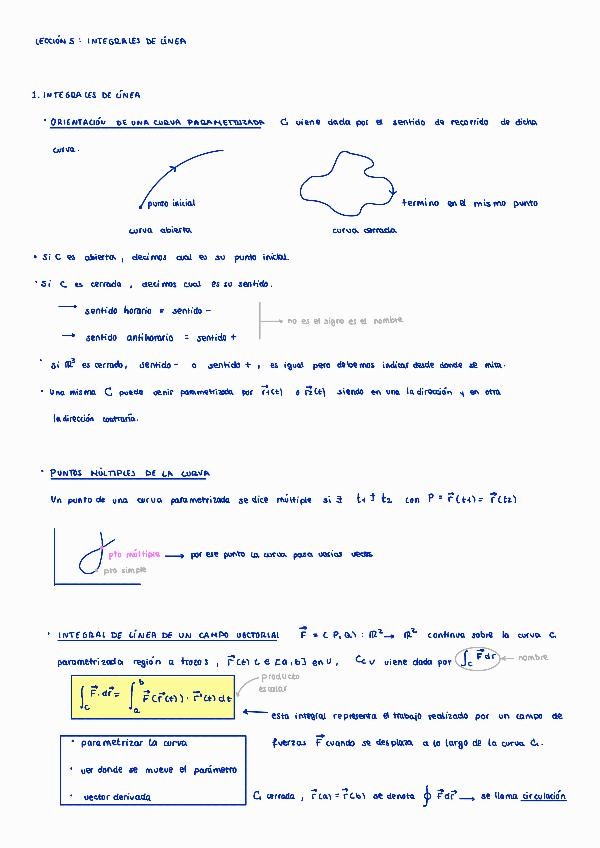 LECCIÓN 5: INTEGRALES DE LÍNEA
1. INTEGRALES DE LÍNEA
· ORIENTACIÓN DE UNA CURVA PARAMETRIZADA C viene dada por el sentido de recorrido de dicha
curva.
punto inicial
termino en el mismo punto
curva abierta
curva cerrada
· Si C es abierta, decimos cual es su punto inicial.
· Si C es cerrada, decimos cual es su sentido.
→ sentido horario = sentido -
→ no es el signo es el nombre
→ sentido antihorario = sentido +
· si ℝ³ es cerrado, sentido - o sentido +, es igual pero debemos indicar desde donde se mira.
· una misma C puede venir parametrizada por r⃗1(t) o r⃗2(t) siendo en una la dirección y en otra
la dirección contraria.
· PUNTOS MÚLTIPLES DE LA CURVA
Un punto de una curva parametrizada se dice múltiple si ∃ t1 ≠ t2 con P = r⃗(t1) = r⃗(t2)
pto múltiple → por ese punto la curva pasa varias veces
pto simple
· INTEGRAL DE LÍNEA DE UN CAMPO VECTORIAL F⃗ = (P,Q): ℝ² → ℝ² continua sobre la curva C
parametrizada región a trozos, r⃗(t) t ∈ [a,b] en U, C⊂U viene dada por ∫C F⃗dr⃗ ← nombre
producto
escalar
∫C F⃗·dr⃗ = ∫ₐᵇ F⃗(r⃗(t))·r⃗'(t)dt
← esta integral representa el trabajo realizado por un campo de
fuerzas F⃗ cuando se desplaza a lo largo de la curva C.
· parametrizar la curva
· ver donde se mueve el parámetro
· vector derivada
C cerrada, r⃗(a) = r⃗(b) se denota ∮ F⃗dr⃗ → se llama circulación